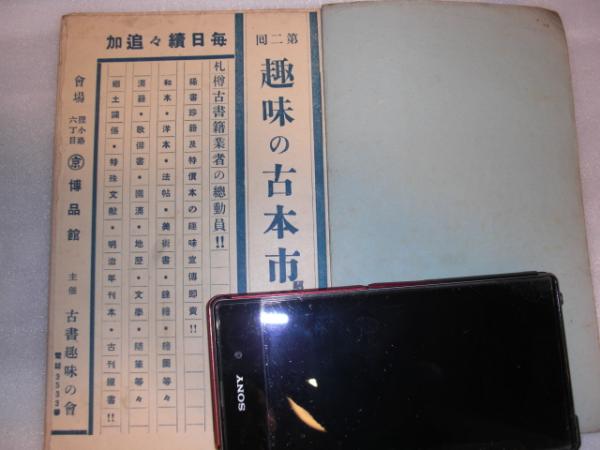 毎日續々追加
第二回
趣味の古本市
札樽古書籍業者の總動員!!
稀書珍籍及特價本の趣味宣傳即賣!!
和本・洋本・法帖・美術書・錦繪・繪圖等々
漢籍・敎儒書・國漢・地歴・文學・隨筆等々
郷土誌係・特殊文獻・明治年刊本・古刊綴書!!
會場
狸小路
六丁目
京
博品館
主催
古書趣味の會
電話3533番
SONY